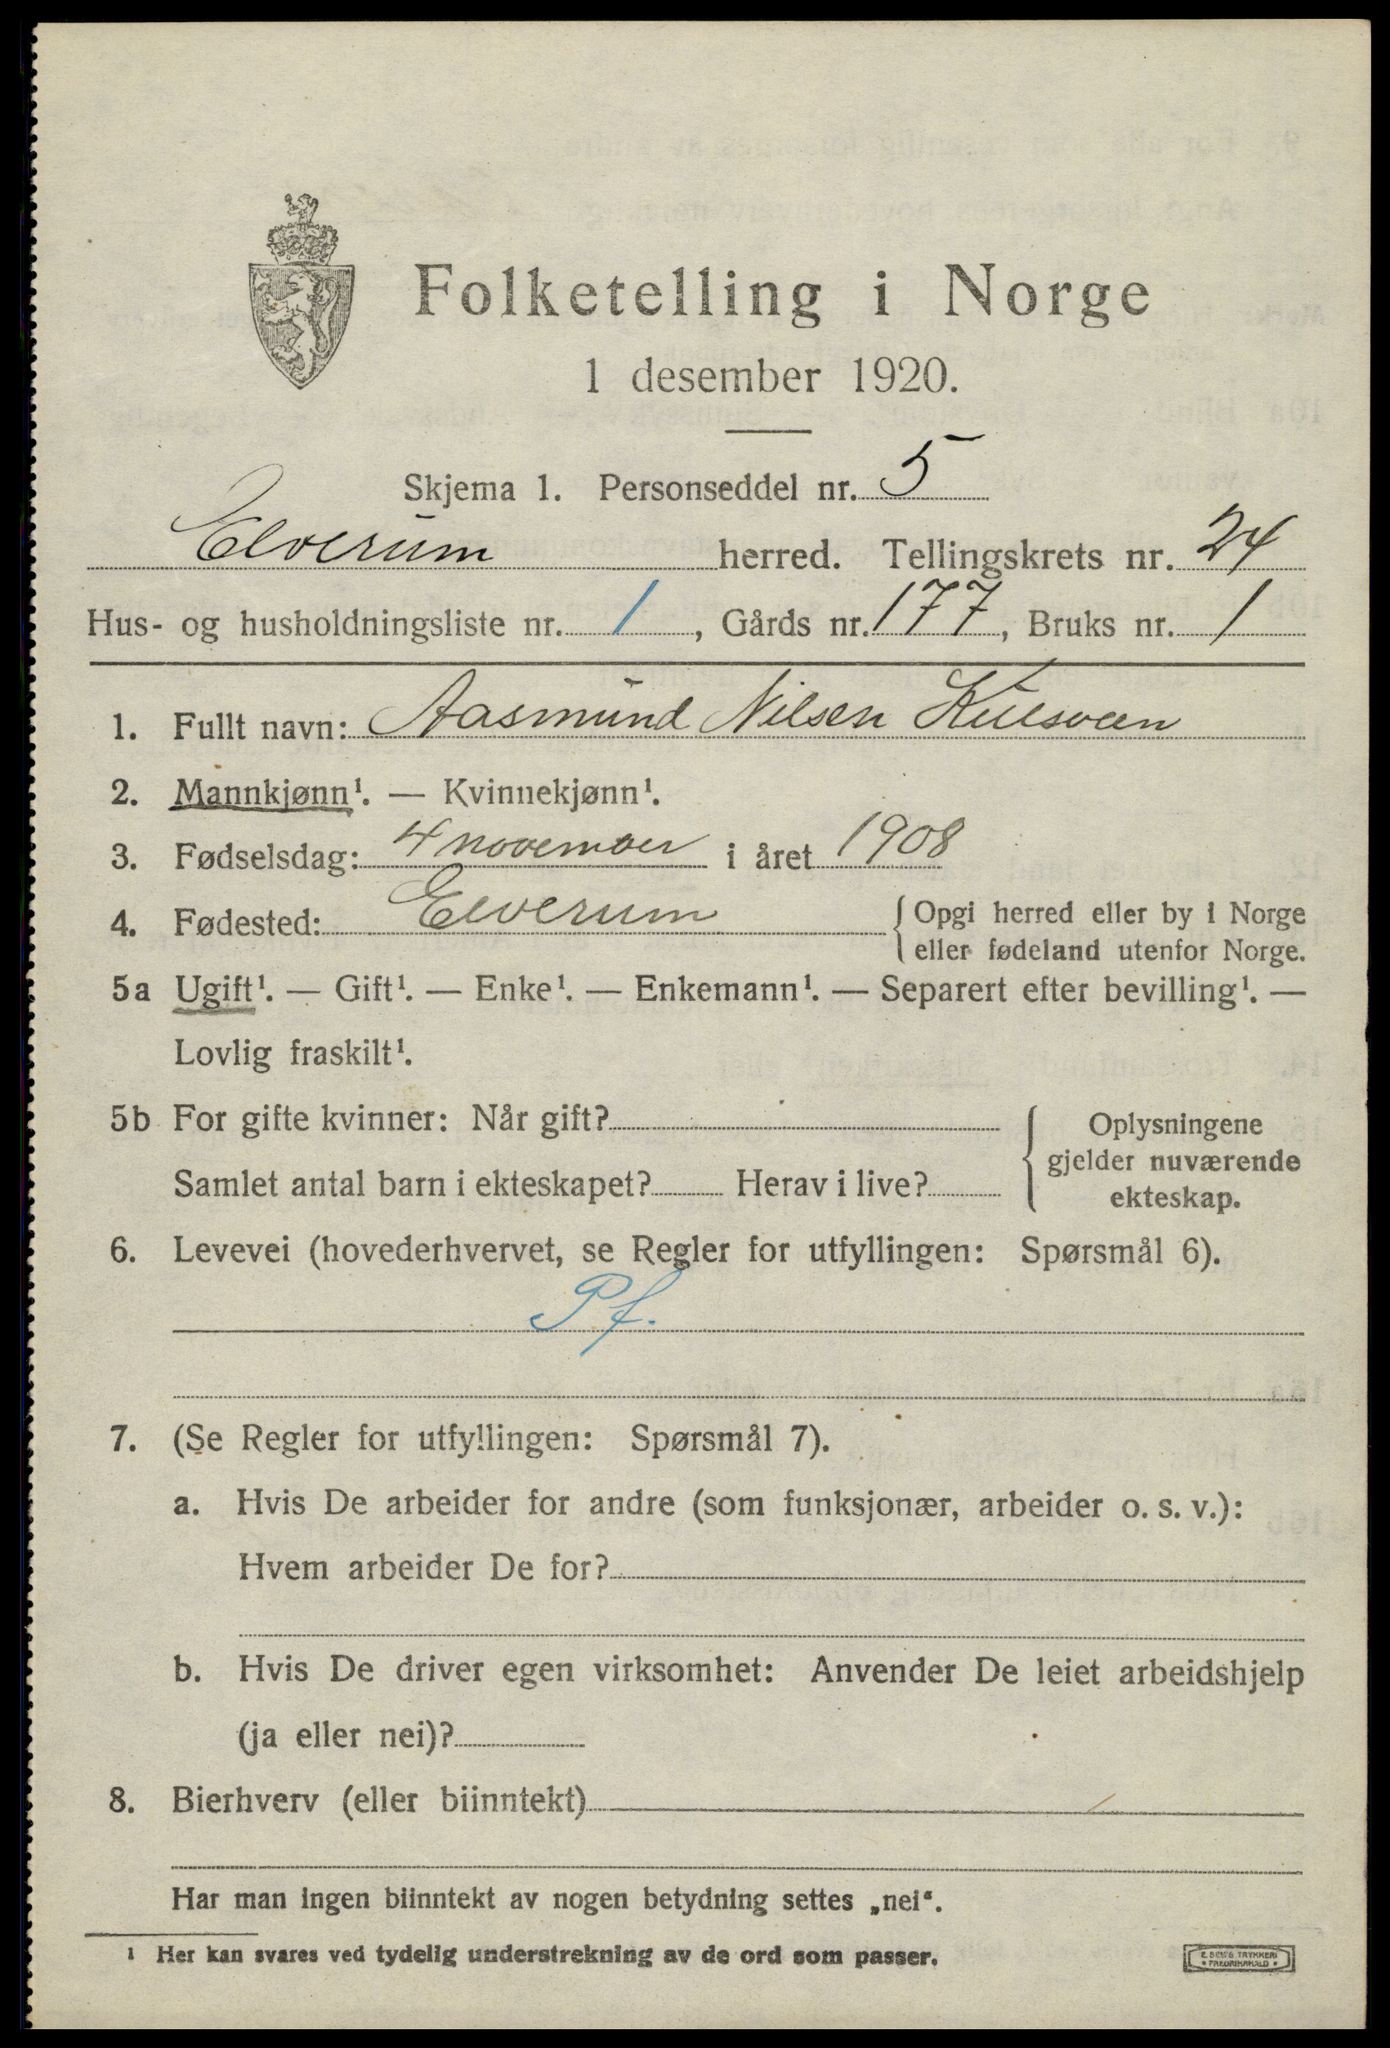 Folketelling i Norge
1 desember 1920.
Skjema 1. Personseddel nr. 5
Elverum herred. Tellingskrets nr. 24
Hus- og husholdningsliste nr. 1, Gårds nr. 177, Bruks nr. 1
1. Fullt navn: Aasmund Nilsen
2. Mannkjønn¹. — Kvinnekjønn¹.
3. Fødselsdag: 4 november i året 1908
4. Fødested: Elverum { Opgi herred eller by i Norge
eller fødeland utenfor Norge.
5a Ugift¹. — Gift¹. — Enke¹. — Enkemann¹. — Separert efter bevilling¹. —
Lovlig fraskilt¹.
5b For gifte kvinner: Når gift?
Samlet antal barn i ekteskapet? Herav i live?
{ Oplysningene
gjelder nuværende
ekteskap.
6. Levevei (hovederhvervet, se Regler for utfyllingen: Spørsmål 6).
Pf.
7. (Se Regler for utfyllingen: Spørsmål 7).
a. Hvis De arbeider for andre (som funksjonær, arbeider o. s. v.):
Hvem arbeider De for?
b. Hvis De driver egen virksomhet: Anvender De leiet arbeidshjelp
(ja eller nei)?
8. Bierhverv (eller biinntekt)
Har man ingen biinntekt av nogen betydning settes „nei“.
¹ Her kan svares ved tydelig understrekning av de ord som passer.
E. SEM'S TRYKKERI
FREDRIKSHALD